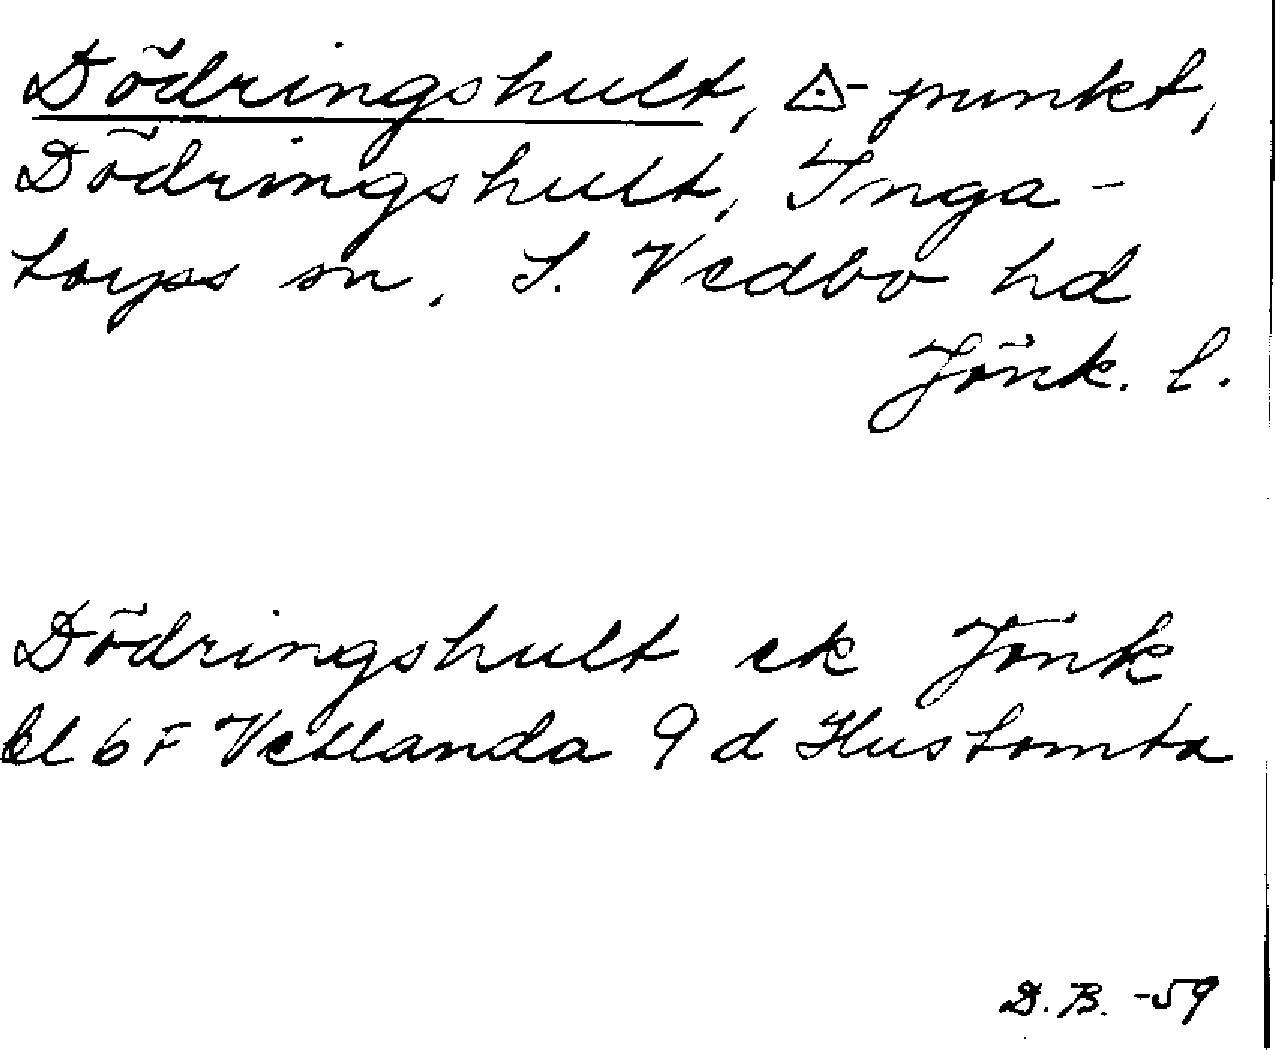 Dödringshult, △-punkt,
Dödringshult, Inga-
torps sn, S. Vedbo hd
Jönk. l.
Dödringshult ek Jönk
bl 6 F Vetlanda 9 d Hustomta
D.B. -59